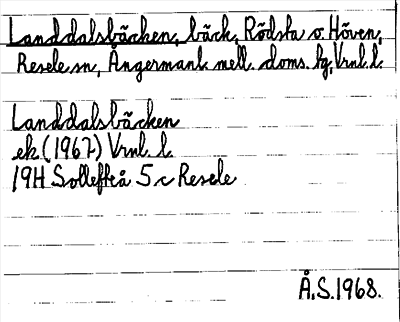 Landdalsbäcken, bäck, Rödsta o. Höven,
Resele sn, Ångermanl. mell. doms. hg, Vrnl. l.
Landdalsbäcken
ek (1967) Vrnl. l.
19H Sollefteå 5c Resele
Å.S. 1968.